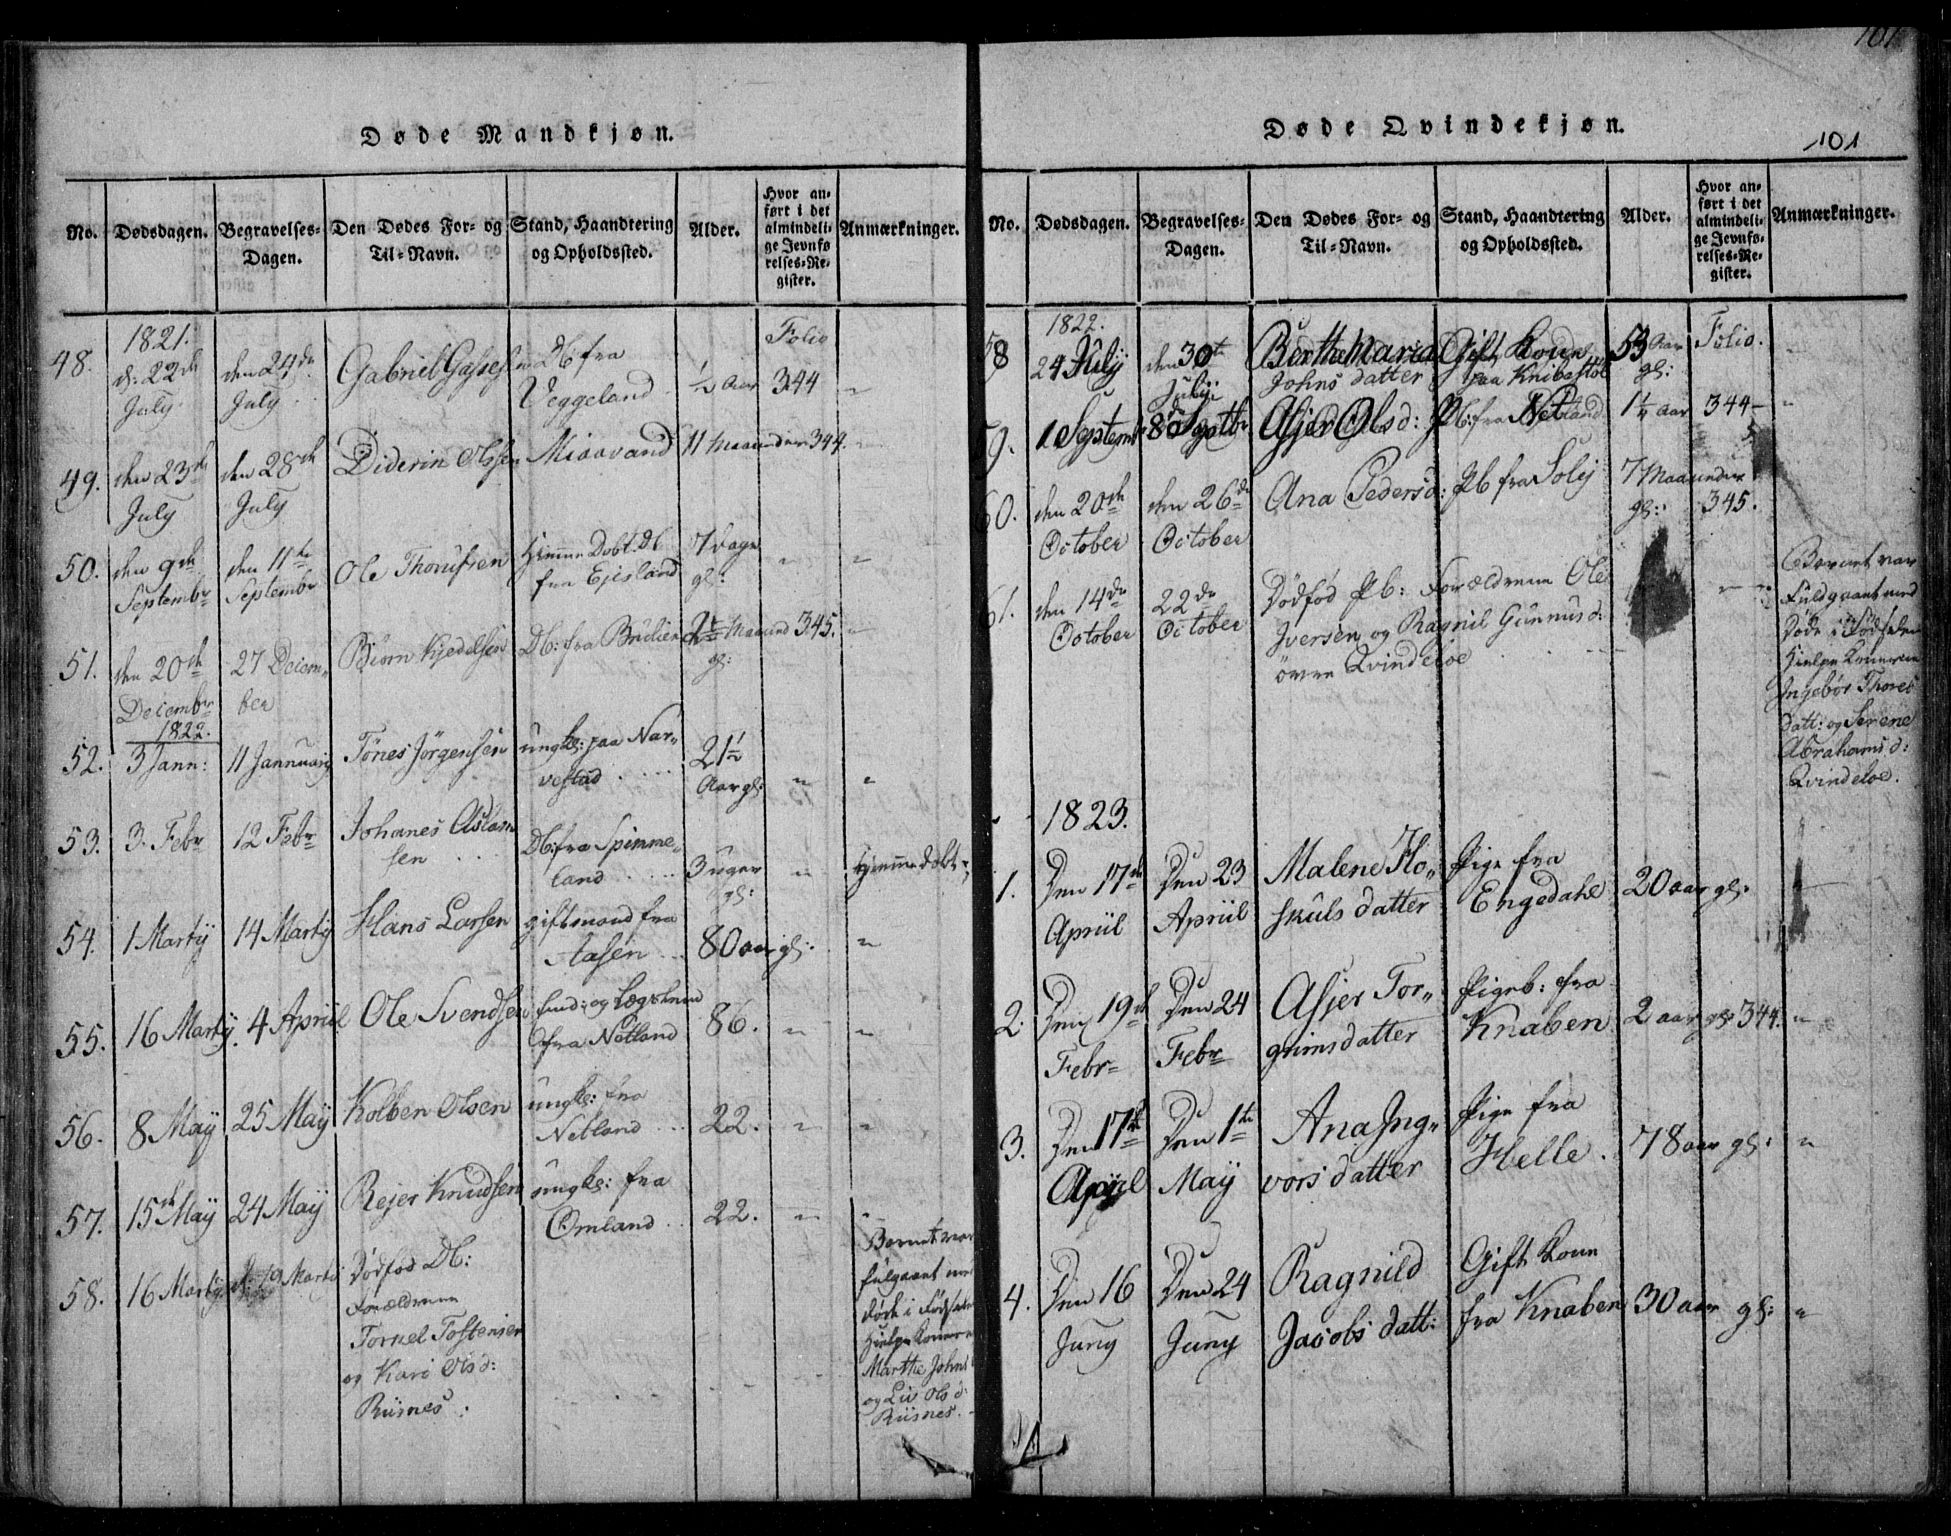 Døde Mandkjøn.
No. Dødsdagen. Begravelses-Dagen. Den Dødes For- og Til-Navn. Stand, Haandtering og Opholdssted. Alder. Hvor anført i det almindelige Jevnførelses-Register. Anmærkninger.
1821.
Folio
48. d: 22de July den 24de July Gabriel Gassesen Db fra Veggeland ½ Aar 344 "
49. den 23de July den 28de July Diderin Olssen Miaavand 11 Maaneder 344. "
50. den 9de Septembr den 11te Septembr Ole Thorussen Hiemme Døbt Db fra Eiesland 7 Dage gl: " "
51. den 20de Decembr 27 December Biørn Kjedelsen Db: fra Maaned gl: 345. "
1822.
52. 3 Jann: 11 Jannuarij Tönes Jörgensen ungk: paa Narvestad 21½ Aar gl: " "
53. 3. Febr 12 Febr Johanes Aslaksen Db: fra Spinneland 3 uger gl: " Hjemmedøbt
54. 1 Martij 14 Martij Hans Larsen giftmand fra Aasen 80 aar gl: "
55. 16 Martij 4 Apriil Ole Svendsen og Lægslem fra Netland 86. " "
56. 8 Maÿ 25 Maÿ Kolben Olsen ungk: fra Netland 22. " "
57. 15de Maÿ 24 Maÿ Rejer Knudsen ungk: fra Omland 22. " "
58. 16 Martij 19 Martij Dødfød Db:
Forældrene
Tornel Tostensen
og Kari Olsd:
Risnes.
Barnet var
fulgaaet
Døde i Fødselen
Hielpekoner
Marthe Johns
og Liv Olsd:
Risnes.
101
Døde Qvindekjøn.
101
No. Dødsdagen. Begravelses-Dagen. Den Dødes For- og Til-Navn. Stand, Haandtering og Opholdssted. Alder. Hvor anført i det almindelige Jevnførelses-Register. Anmærkninger.
1822.
58 24 Julÿ den 30te Julij Berthe Maria Johns datter Gift Kone paa Knibestøl 53 Aar gl: Folio.
59. 1 Septembr 8de Septbr Asjer Olsd: Pb: fra Netland 1¼ Aar 344 "
60. den 20de October den 26de October Ana Pedersd: Pb fra Solij 7 Maaneder gl: 345.
61. den 14de October 22de October Dødfød Pb: Forældrene Ole
Iversen og Ragnil Gunnusd:
øvre Qvindeloe
Barnet var
Fuldgaaet med
Døde i Fødselen
Hielpe Konerne
Ingebor Thores
datt: og Serene
Abrahamsd:
Qvindeloe.
1823.
1. Den 17de Apriil Den 23 Apriil Malene Hoskuls datter Pige fra Engedahl 20 aar gl:
2. Den 19de Febr Den 24 Febr Asjer Torgrimsdatter Pigeb: fra Knaben 2 aar gl: 344. "
3. Den 17de Apriil Den 1te Maÿ Ana Ingvors datter Pige fra Helle. 78 aar gl: "
4. Den 16 Junÿ Den 24 Junÿ Ragnild Jacobs datt: Gift Kone fra Knaben 30 aar gl: "